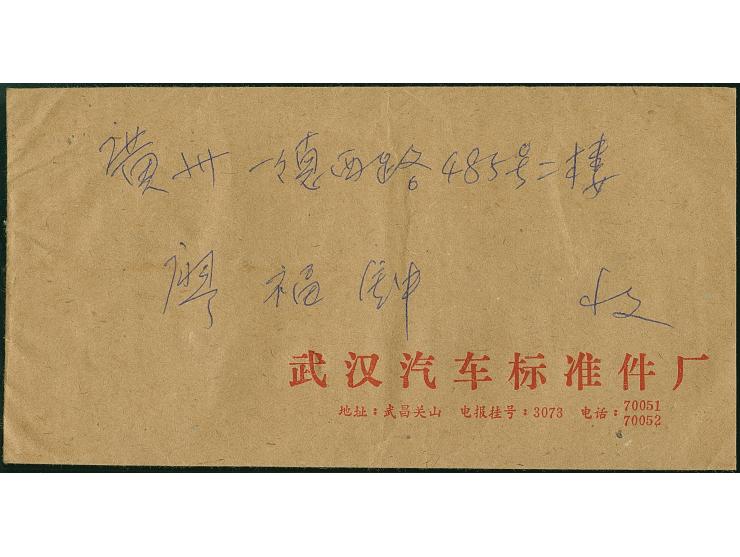 廣州 一德西路485号二楼
廖福鈿 收
武汉汽车标准件厂
地址：武昌关山 电报挂号：3073 电话：70051 70052